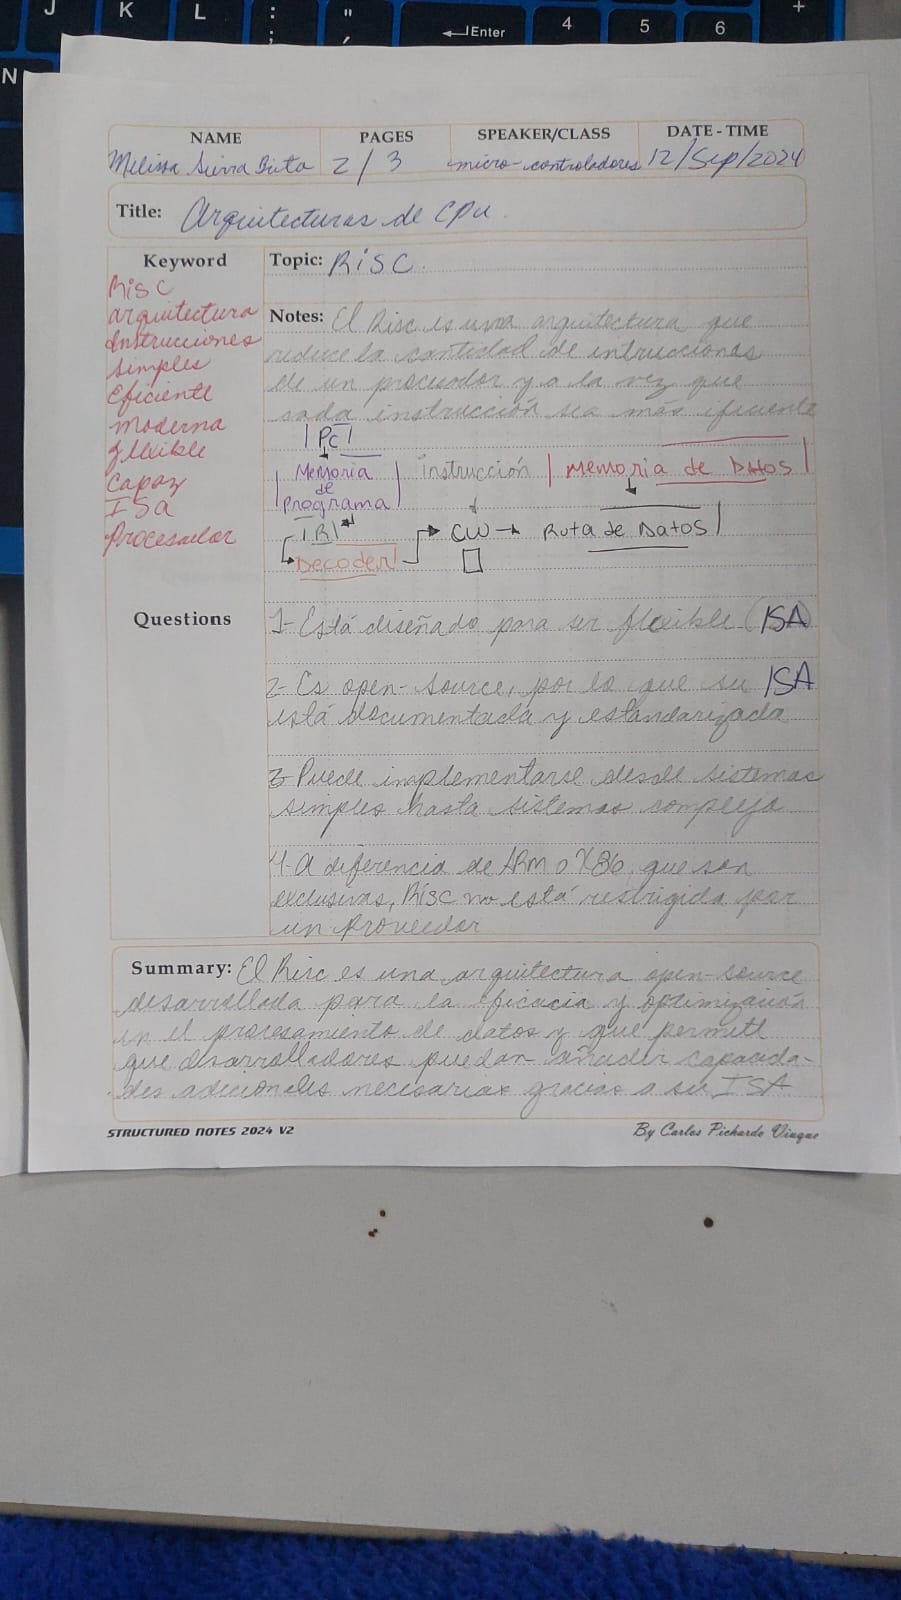 J K L : ; " ' Enter 4 5 6 +
N
NAME PAGES SPEAKER/CLASS DATE - TIME
Melissa Sierra Brito 2/3 micro-controladores 12/Sep/2024
Title: Arquitecturas de CPU
Keyword
RISC
arquitectura
Instrucciones
simples
Eficiente
Moderna
flexible
Capaz
ISa
Procesador
Topic: RISC
Notes: El Risc es una arquitectura que
reduce la cantidad de intrucciones
de un procesador y a la vez que
cada instrucción sea más ificiente
PC
Memoria de Programa
instrucción
Memoria de Datos
IR
CW → Ruta de Datos
Decoder
Questions
1- Está diseñado para ser flexible (ISA)
2- Es open-source, por lo que su ISA
está documentada y estandarizada
3- Puede implementarse desde sistemas
simples hasta sistemas compleja
4- A diferencia de ARM o X86 que son
exclusivas, RISC no está restrigida por
un proveedor
Summary: El Risc es una arquitectura open-source
desarrollada para la eficacia y optimización
en el procesamiento de datos y que permite
que desarrolladores puedan añader capacida-
des adicionales necesarias gracias a su ISA
STRUCTURED NOTES 2024 V2 By Carlos Pichardo Viuque